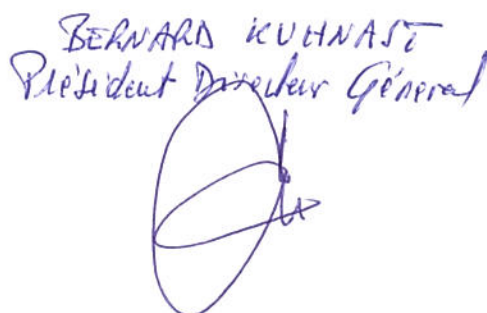 BERNARD KUHNAST
Président Directeur Général